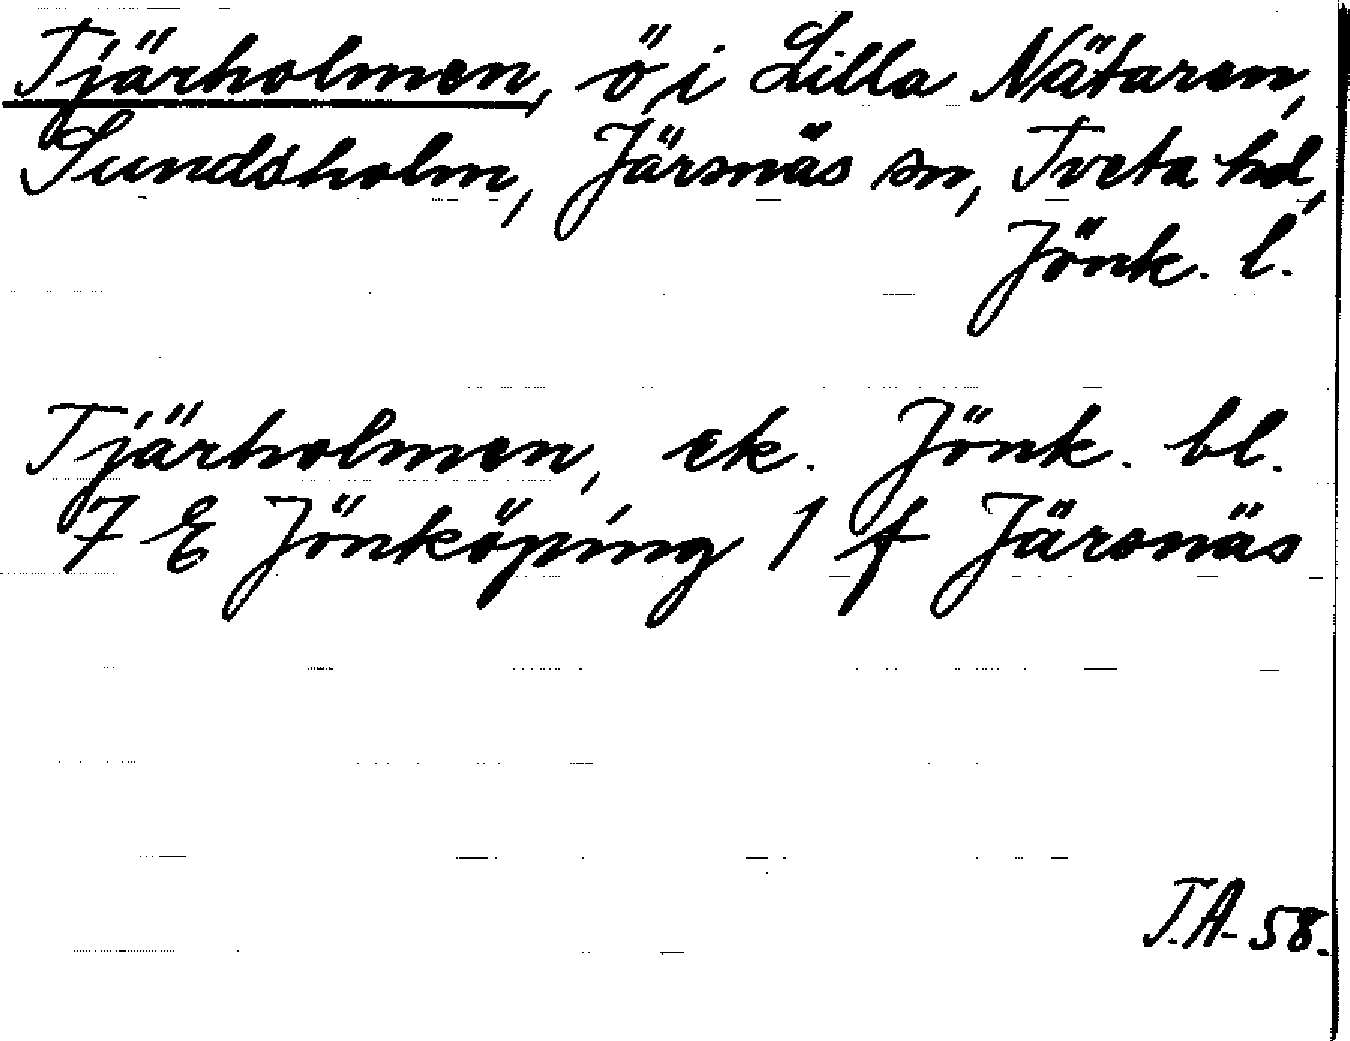 Tjärholmen, ö i Lilla Nätaren,
Sundsholm, Järsnäs sn, Tveta hd,
Jönk. l.
Tjärholmen, ek. Jönk. bl.
7 E Jönköping 1 f Järsnäs
T.A. 58.